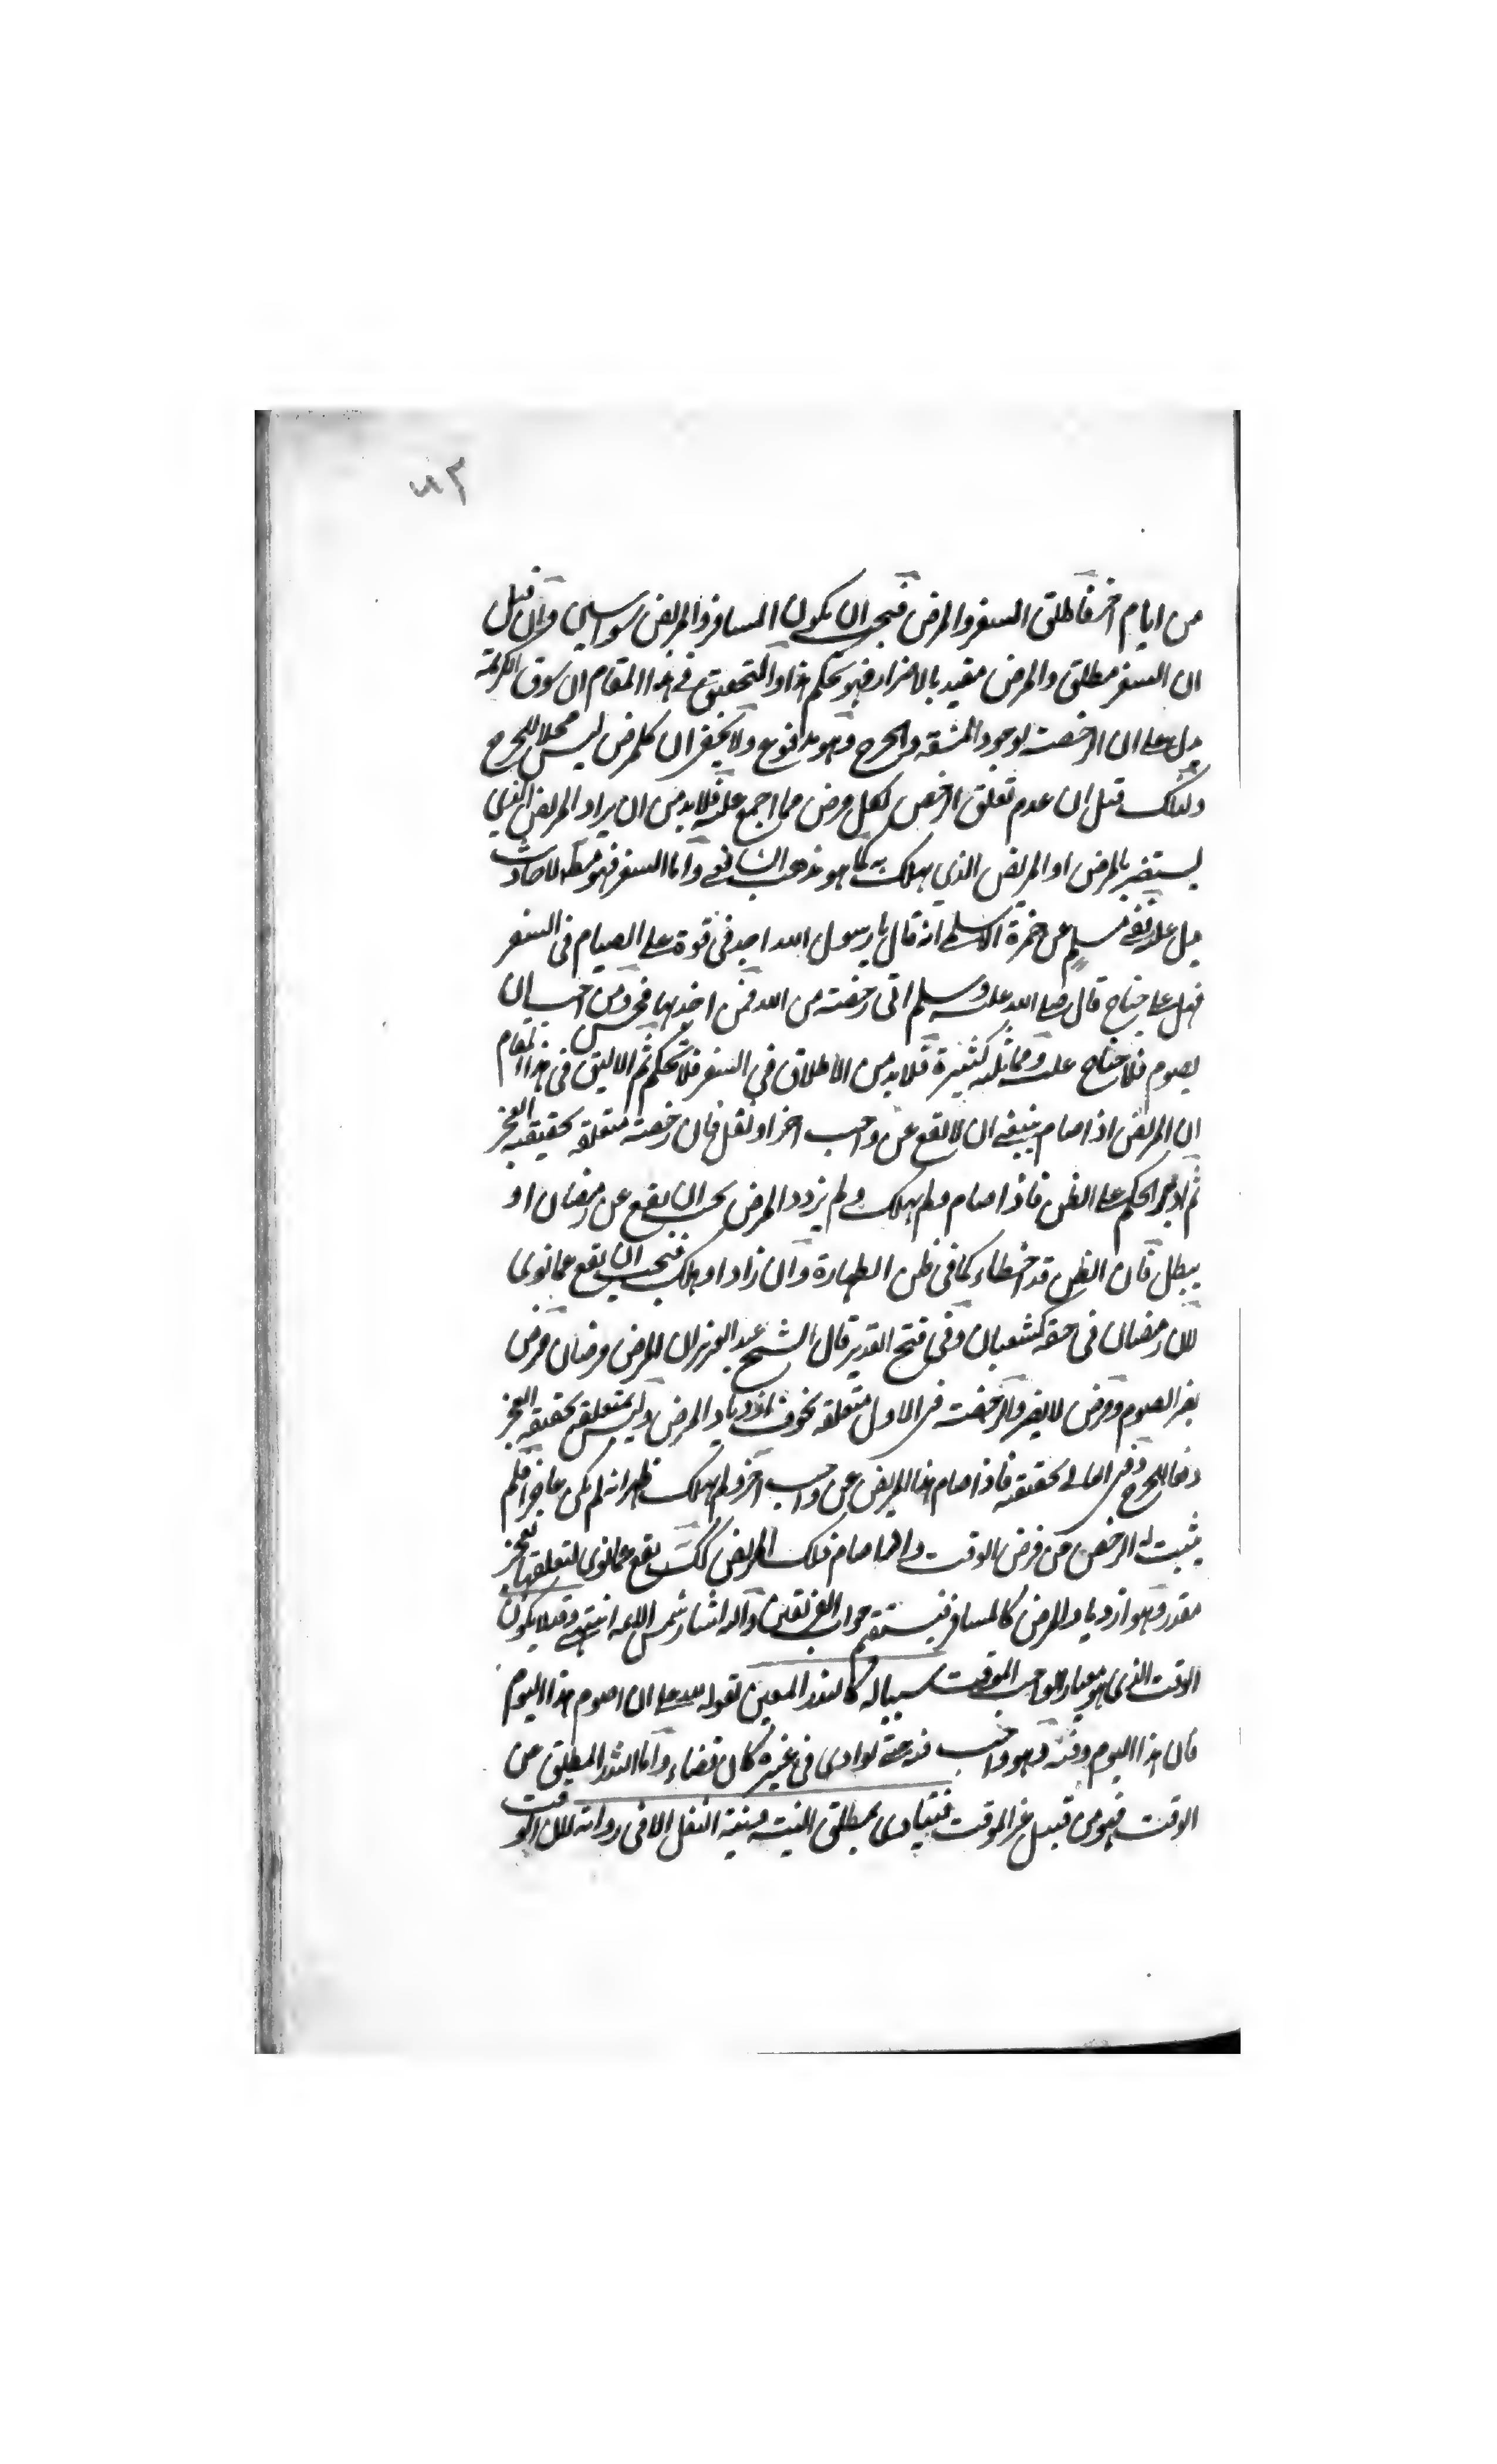 ٨٢
من ايام اخر فاطلق السفر والمرض فيجب ان يكون المسافر والمريض سواسيين وان قيل
ان السفر مطلق والمرض مقيد بالاضرار فهو تحكم هذا والتحقيق في هذا المقام ان سوق الكريمة
يدل على ان الرخصة لوجود المشقة والحرج وهو مدفوع ولا يخفى ان كل مرض ليس محلا للحرج
ولذلك قيل ان عدم تعلق الرخص بكل مرض مما اجمع عليه فلا بد من ان يراد المريض الذي
يستضر بالمرض او المريض الذي يهلك به كما هو مذهب الشافعي واما السفر فهو مطلق الاحاديث
يدل عليه ففي مسلم عن حمزة الاسلمي انه قال يا رسول الله اجد في قوة على الصيام في السفر
فهل علي جناح قال صلى الله عليه وسلم اتى رخصة من الله فمن اخذ بها فحسن ومن احب ان
يصوم فلا جناح عليه ومما ثلثه كثيرة فلا بد من الاطلاق في السفر فلا تحكم ثم الاليق في هذا المقام
ان المريض اذا صام ينبغي ان لا يقع عن واجب اخر او نفل فان رخصته متعلقة بحقيقة العجز
ثم الحكم على الظن فاذا صام ولم يهلك ولم يزدد المرض يجب ان يقع عن رمضان او
يبطل فان الظن قد اخطاء كما في ظن الطهارة وان زاد او هلك فيجب ان يقع عما نوى
لان رمضان في حقه كشعبان وفي فتح القدير قال الشيخ عبد العزيز ان المرض مرضان مرض
يضر الصوم ومرض لا يضر والرخصة في الاول متعلقة بخوف ازدياد المرض وليس بمتعلق بحقيقة العجز
دفعا للحرج وفي الثاني بحقيقته فاذا صام هذا المريض عن واجب اخر ولم يهلك ظهر انه لم يكن عاجزا فلم
يثبت له الرخص عن فرض الوقت واذا صام ذلك المريض كذلك يقع عما نوى لتعلقها بعجز
مقدر وهو ازدياد المرض كالمسافر فيستقيم جواب الفريقين واليه اشار شمس الائمة انتهى وقد لا يكون
الوقت الذي هو معيار الواجب الموقت سببا له كالنذر المعين لقوله لله على ان اصوم هذا اليوم
فان هذا اليوم وقته وهو واجب فيه حتى لو ادى في غيره كان قضاء واما النذر المطلق عن
الوقت فهو من قبيل غير الموقت فيتادى بمطلق النية ونية النفل الا في رواية لان الوقت